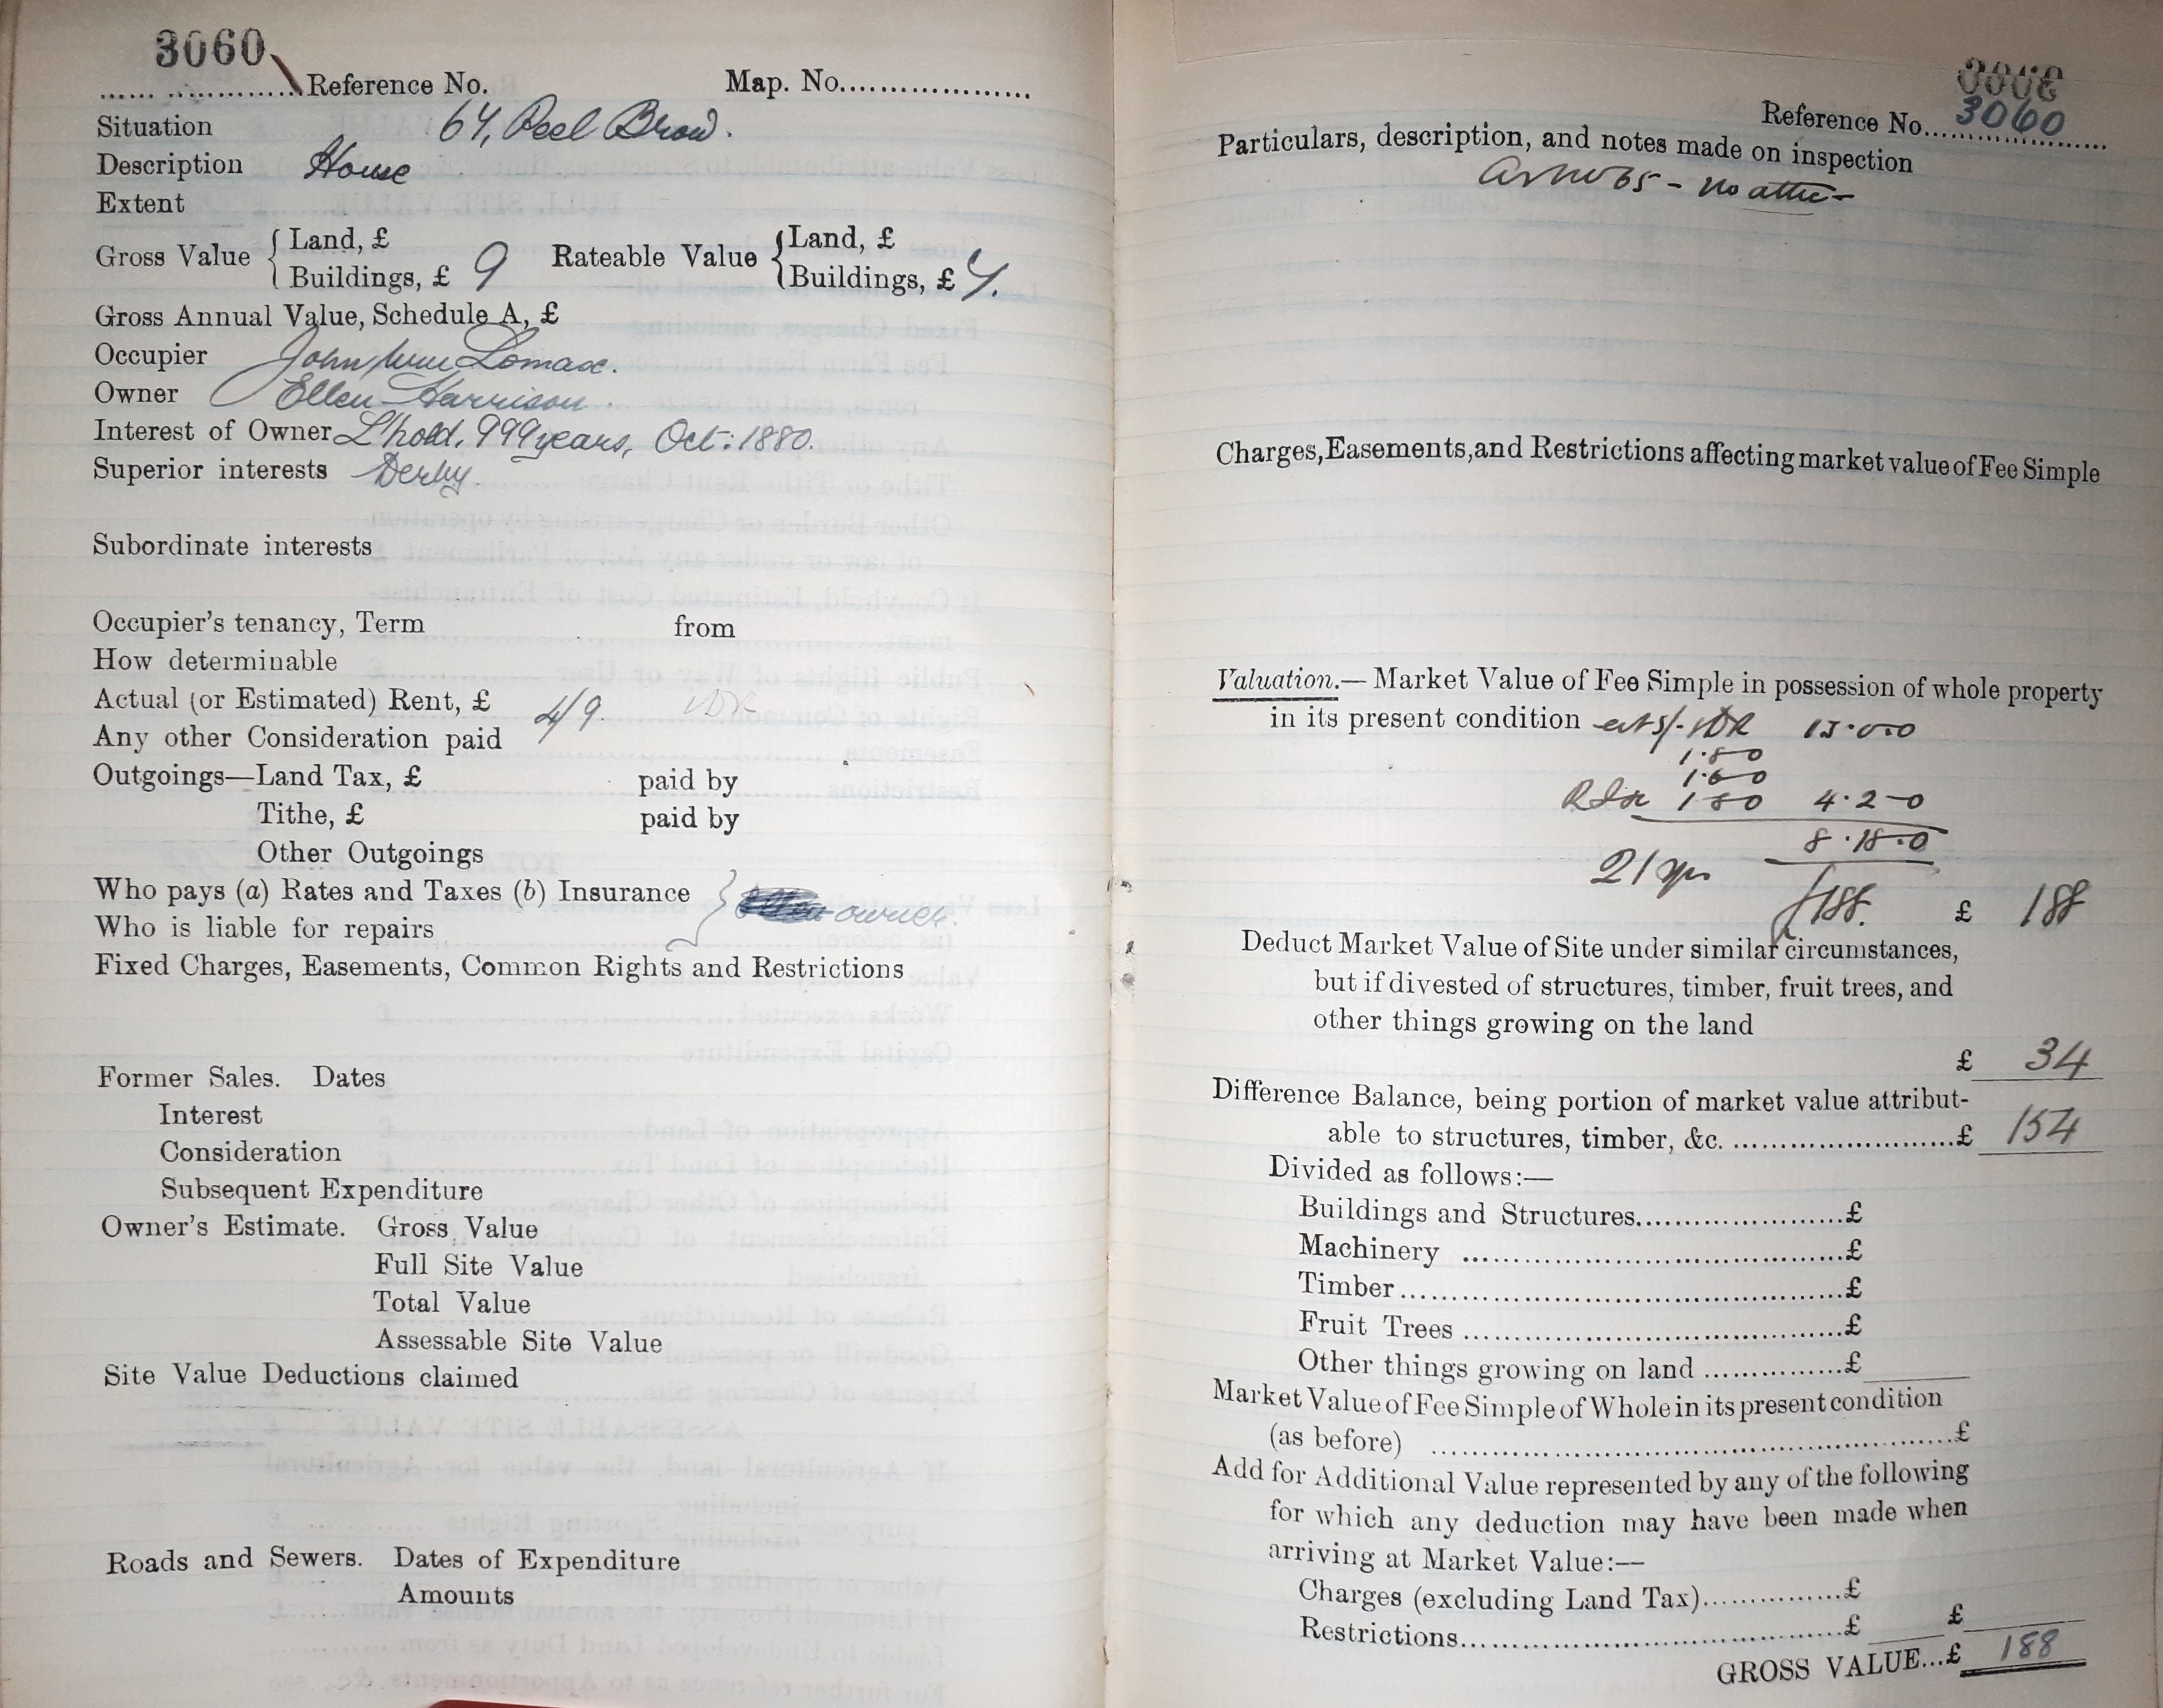 3060
Reference No. Map. No.
Situation 64, Peel Brow.
Description House
Extent
Gross Value { Land, £
Buildings, £ 9 Rateable Value { Land, £
Buildings, £ 7.
Gross Annual Value, Schedule A, £
Occupier John Wm Lomax.
Owner Ellen Harrison.
Interest of Owner L'hold, 999 years, Oct: 1880.
Superior interests Derby.
Subordinate interests
Occupier's tenancy, Term from
How determinable
Actual (or Estimated) Rent, £ 4/9.
Any other Consideration paid
Outgoings—Land Tax, £ paid by
Tithe, £ paid by
Other Outgoings
Who pays (a) Rates and Taxes (b) Insurance } owner.
Who is liable for repairs
Fixed Charges, Easements, Common Rights and Restrictions
Former Sales. Dates
Interest
Consideration
Subsequent Expenditure
Owner's Estimate. Gross Value
Full Site Value
Total Value
Assessable Site Value
Site Value Deductions claimed
Roads and Sewers. Dates of Expenditure
Amounts
Reference No. 3060
Particulars, description, and notes made on inspection
As No 65 - no attic
Charges, Easements, and Restrictions affecting market value of Fee Simple
Valuation.— Market Value of Fee Simple in possession of whole property
in its present condition est 5/- 13.0.0
1.8.0
1.6.0
1 8 0 4.2-0
8.18.0
21 yrs
£188. £ 188
Deduct Market Value of Site under similar circumstances,
but if divested of structures, timber, fruit trees, and
other things growing on the land
£ 34
Difference Balance, being portion of market value attribut-
able to structures, timber, &c. £ 154
Divided as follows:—
Buildings and Structures £
Machinery £
Timber £
Fruit Trees £
Other things growing on land £
Market Value of Fee Simple of Whole in its present condition
(as before) £
Add for Additional Value represented by any of the following
for which any deduction may have been made when
arriving at Market Value:—
Charges (excluding Land Tax) £
Restrictions £ £
GROSS VALUE...£ 188